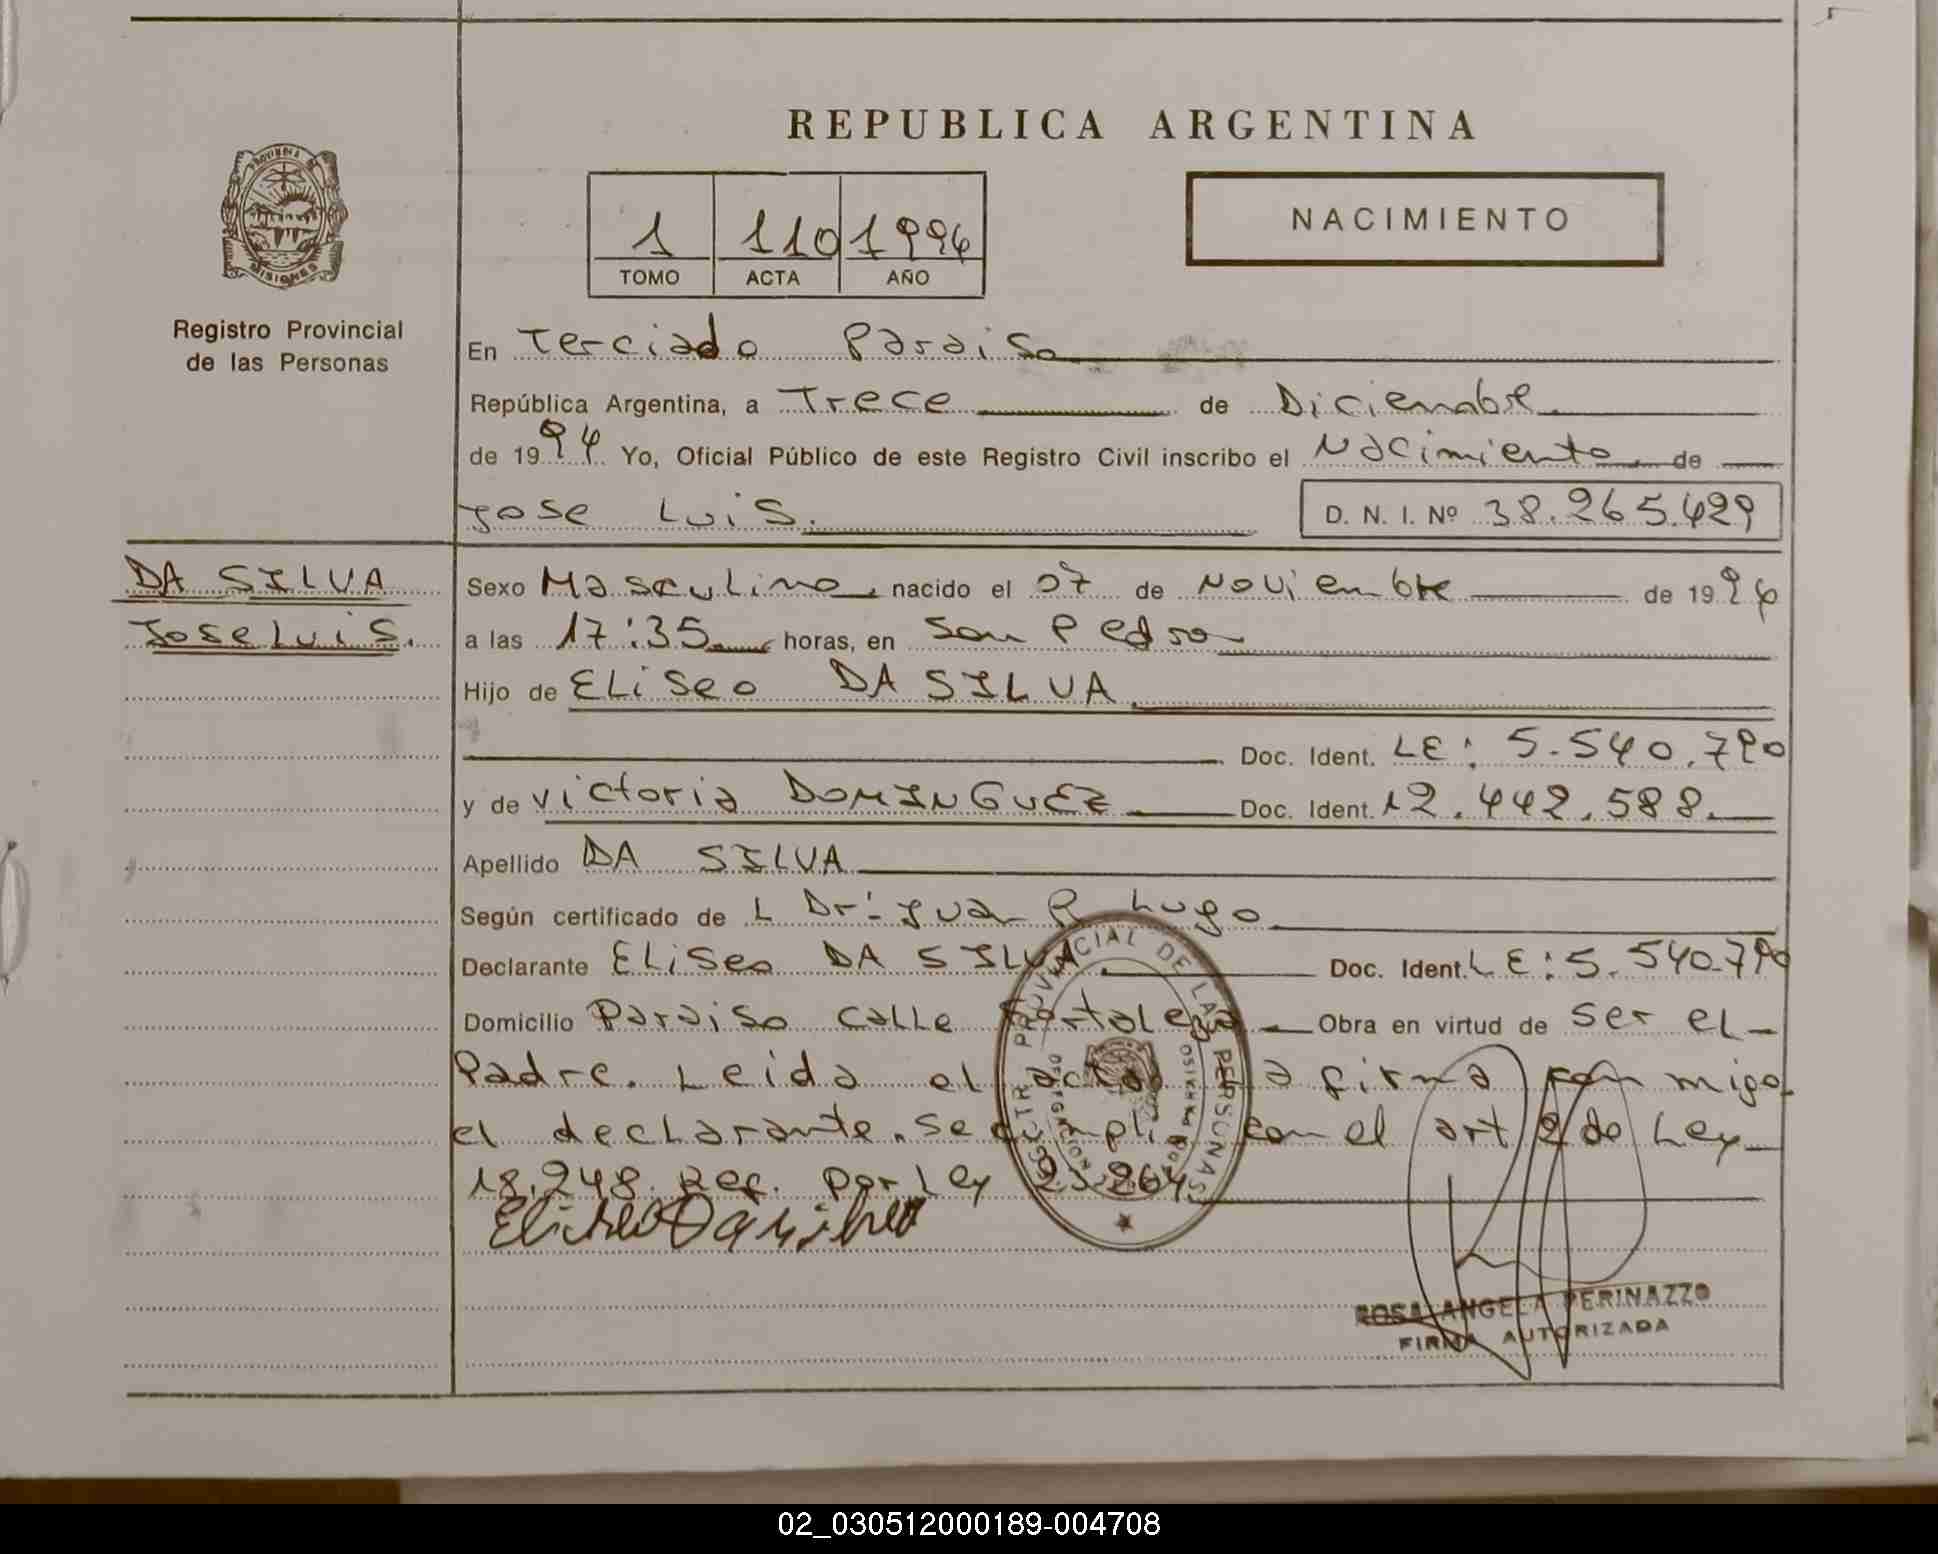 REPUBLICA ARGENTINA
PROVINCIA DE
MISIONES
Registro Provincial
de las Personas
1 110 1994
TOMO ACTA AÑO
NACIMIENTO
En Terciado Paraiso
República Argentina, a Trece de Diciembre
de 1994 Yo, Oficial Público de este Registro Civil inscribo el Nacimiento de
Jose Luis. D. N. I. Nº 38.265.429
DA SILVA
Jose Luis.
Sexo Masculino, nacido el 07 de Noviembre de 1994
a las 17:35 horas, en San Pedro
Hijo de ELiseo DA SILVA
Doc. Ident. LE: 5.540.790
y de Victoria DOMINGUEZ Doc. Ident. 12.442.588.
Apellido DA SILVA
Según certificado de L Dr: Juan R Lugo
Declarante ELiseo DA SILVA Doc. Ident. LE: 5.540.790
Domicilio Paraiso calle Fortaleza Obra en virtud de ser el
Padre. Leida el acta la firma con migo
el declarante. se cumplio con el art 2 de Ley
18.248. Ref. por Ley 23.264
REGISTRO PROVINCIAL DE LAS PERSONAS
ROSA ANGELA PERINAZZO
FIRMA AUTORIZADA
02_030512000189-004708